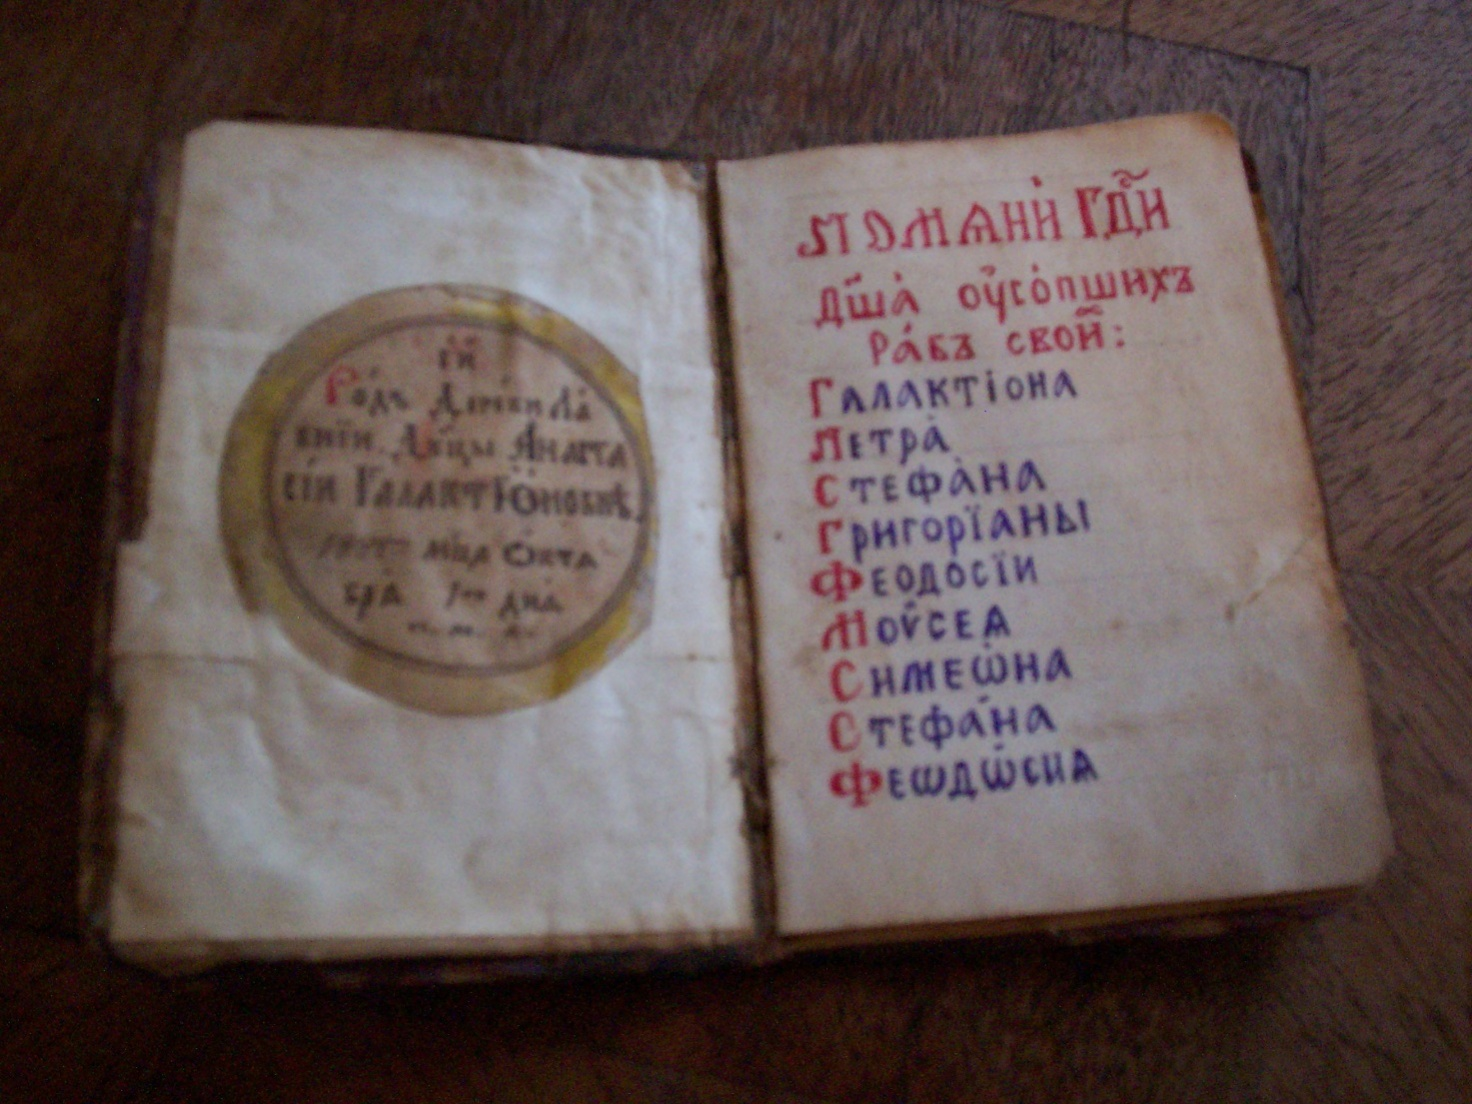 Родъ Деревни Ла
вніи. Двцы Анаста
сіи Галактіоновнѣ.
мца Октѧ
брѧ днѧ
Помѧни Гди
дша оусопшихъ
рабъ свои:
Галактіона
Петра
Стефана
Григоріаны
Феодосіи
Моѵсеѧ
Симеѡна
Стефана
Феѡдѡсиѧ